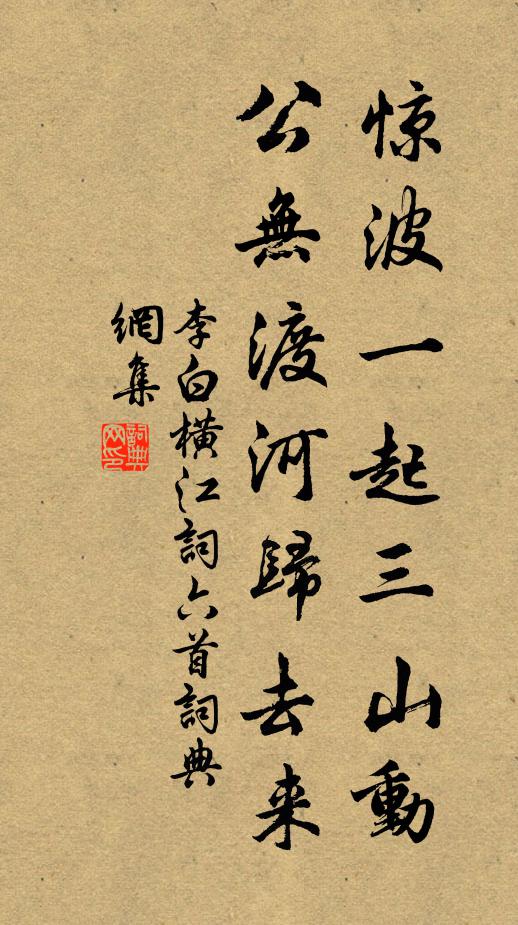 惊波一起三山動
公無渡河歸去来
李白橫江詞六首詞典
網集
詞典网印